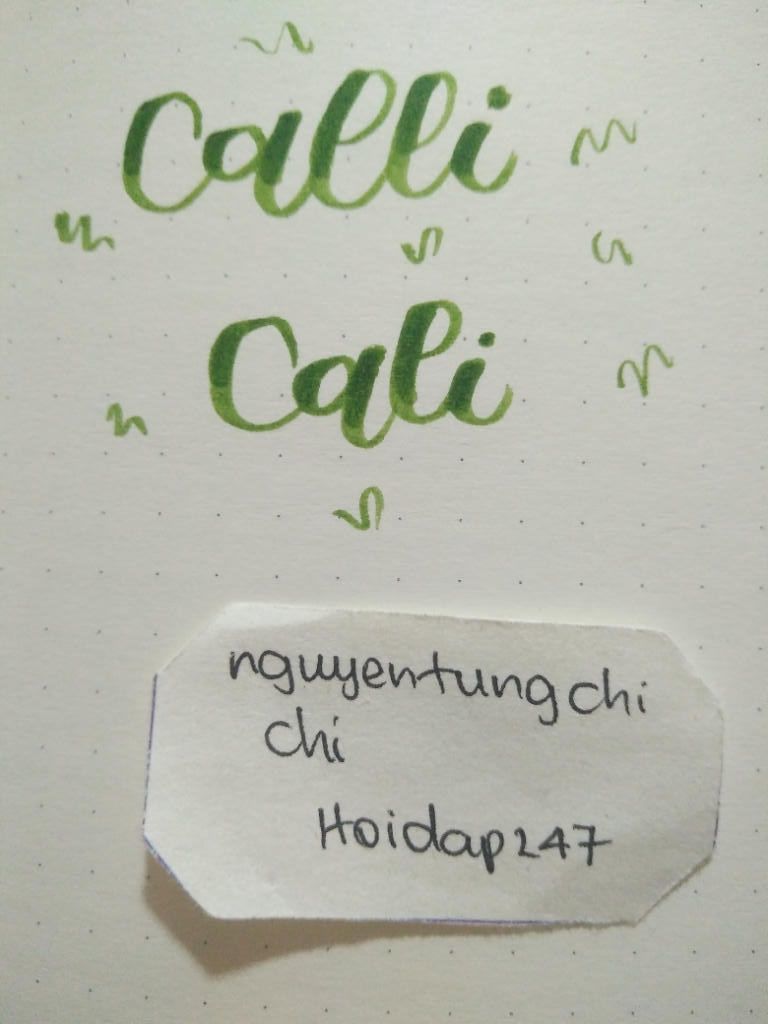 Calli
Cali
nguyentungchi
chi
Hoidap247